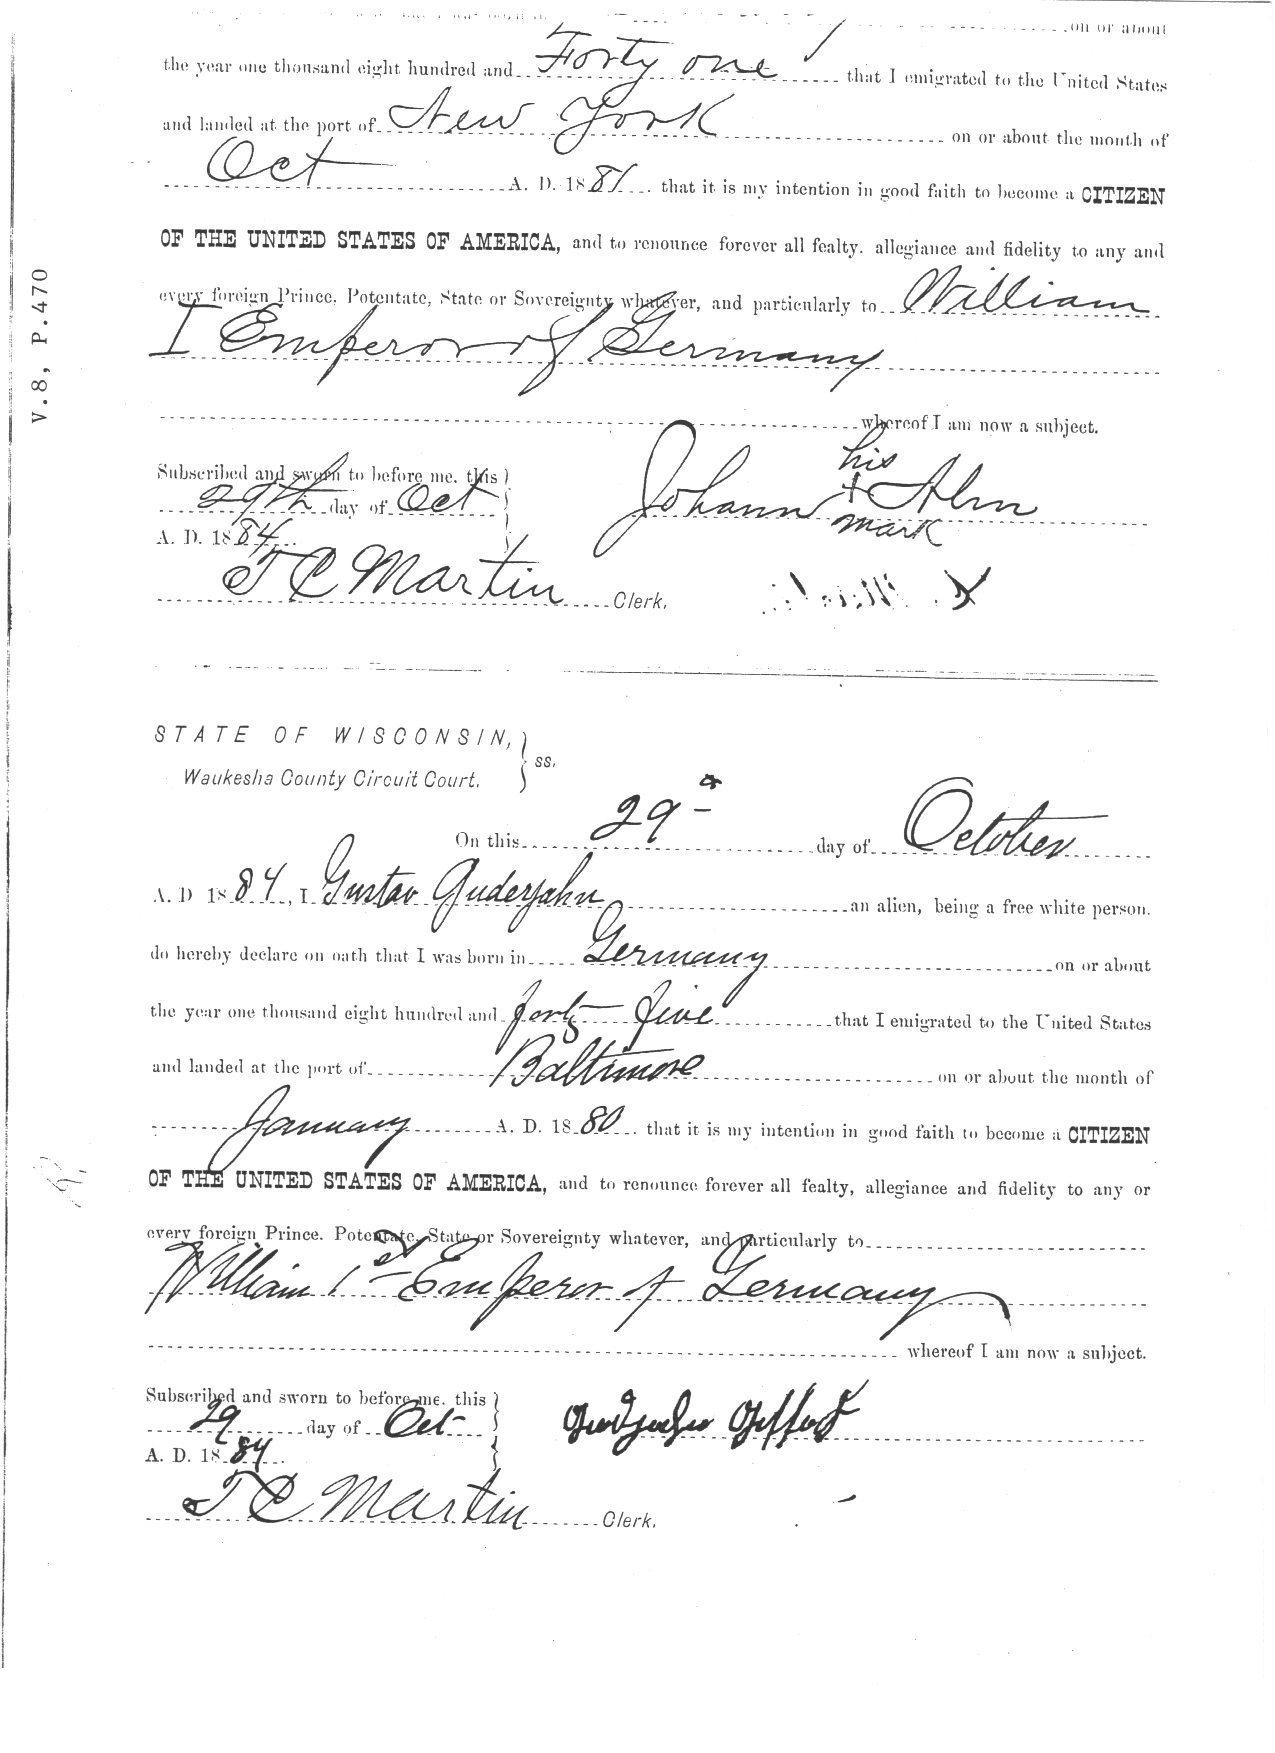 on or about
the year one thousand eight hundred and Forty one that I emigrated to the United States
and landed at the port of New York on or about the month of
Oct A. D. 1881 that it is my intention in good faith to become a CITIZEN
OF THE UNITED STATES OF AMERICA, and to renounce forever all fealty. allegiance and fidelity to any and
every foreign Prince, Potentate, State or Sovereignty whatever, and particularly to William
I Emperor of Germany
whereof I am now a subject.
Subscribed and sworn to before me, this
29th day of Oct
A. D. 1884
his
Johann + Alm
mark
T C Martin Clerk.
V.8, P.470
STATE OF WISCONSIN,
Waukesha County Circuit Court. ss.
On this 29 day of October
A. D 1884, I Gustav Guderjahn an alien, being a free white person.
do hereby declare on oath that I was born in Germany on or about
the year one thousand eight hundred and forty five that I emigrated to the United States
and landed at the port of Baltimore on or about the month of
January A. D. 1880 that it is my intention in good faith to become a CITIZEN
OF THE UNITED STATES OF AMERICA, and to renounce forever all fealty, allegiance and fidelity to any or
every foreign Prince. Potentate, State or Sovereignty whatever, and particularly to
William 1st Emperor of Germany
whereof I am now a subject.
Subscribed and sworn to before me. this
29 day of Oct
A. D. 1884
T C Martin Clerk.